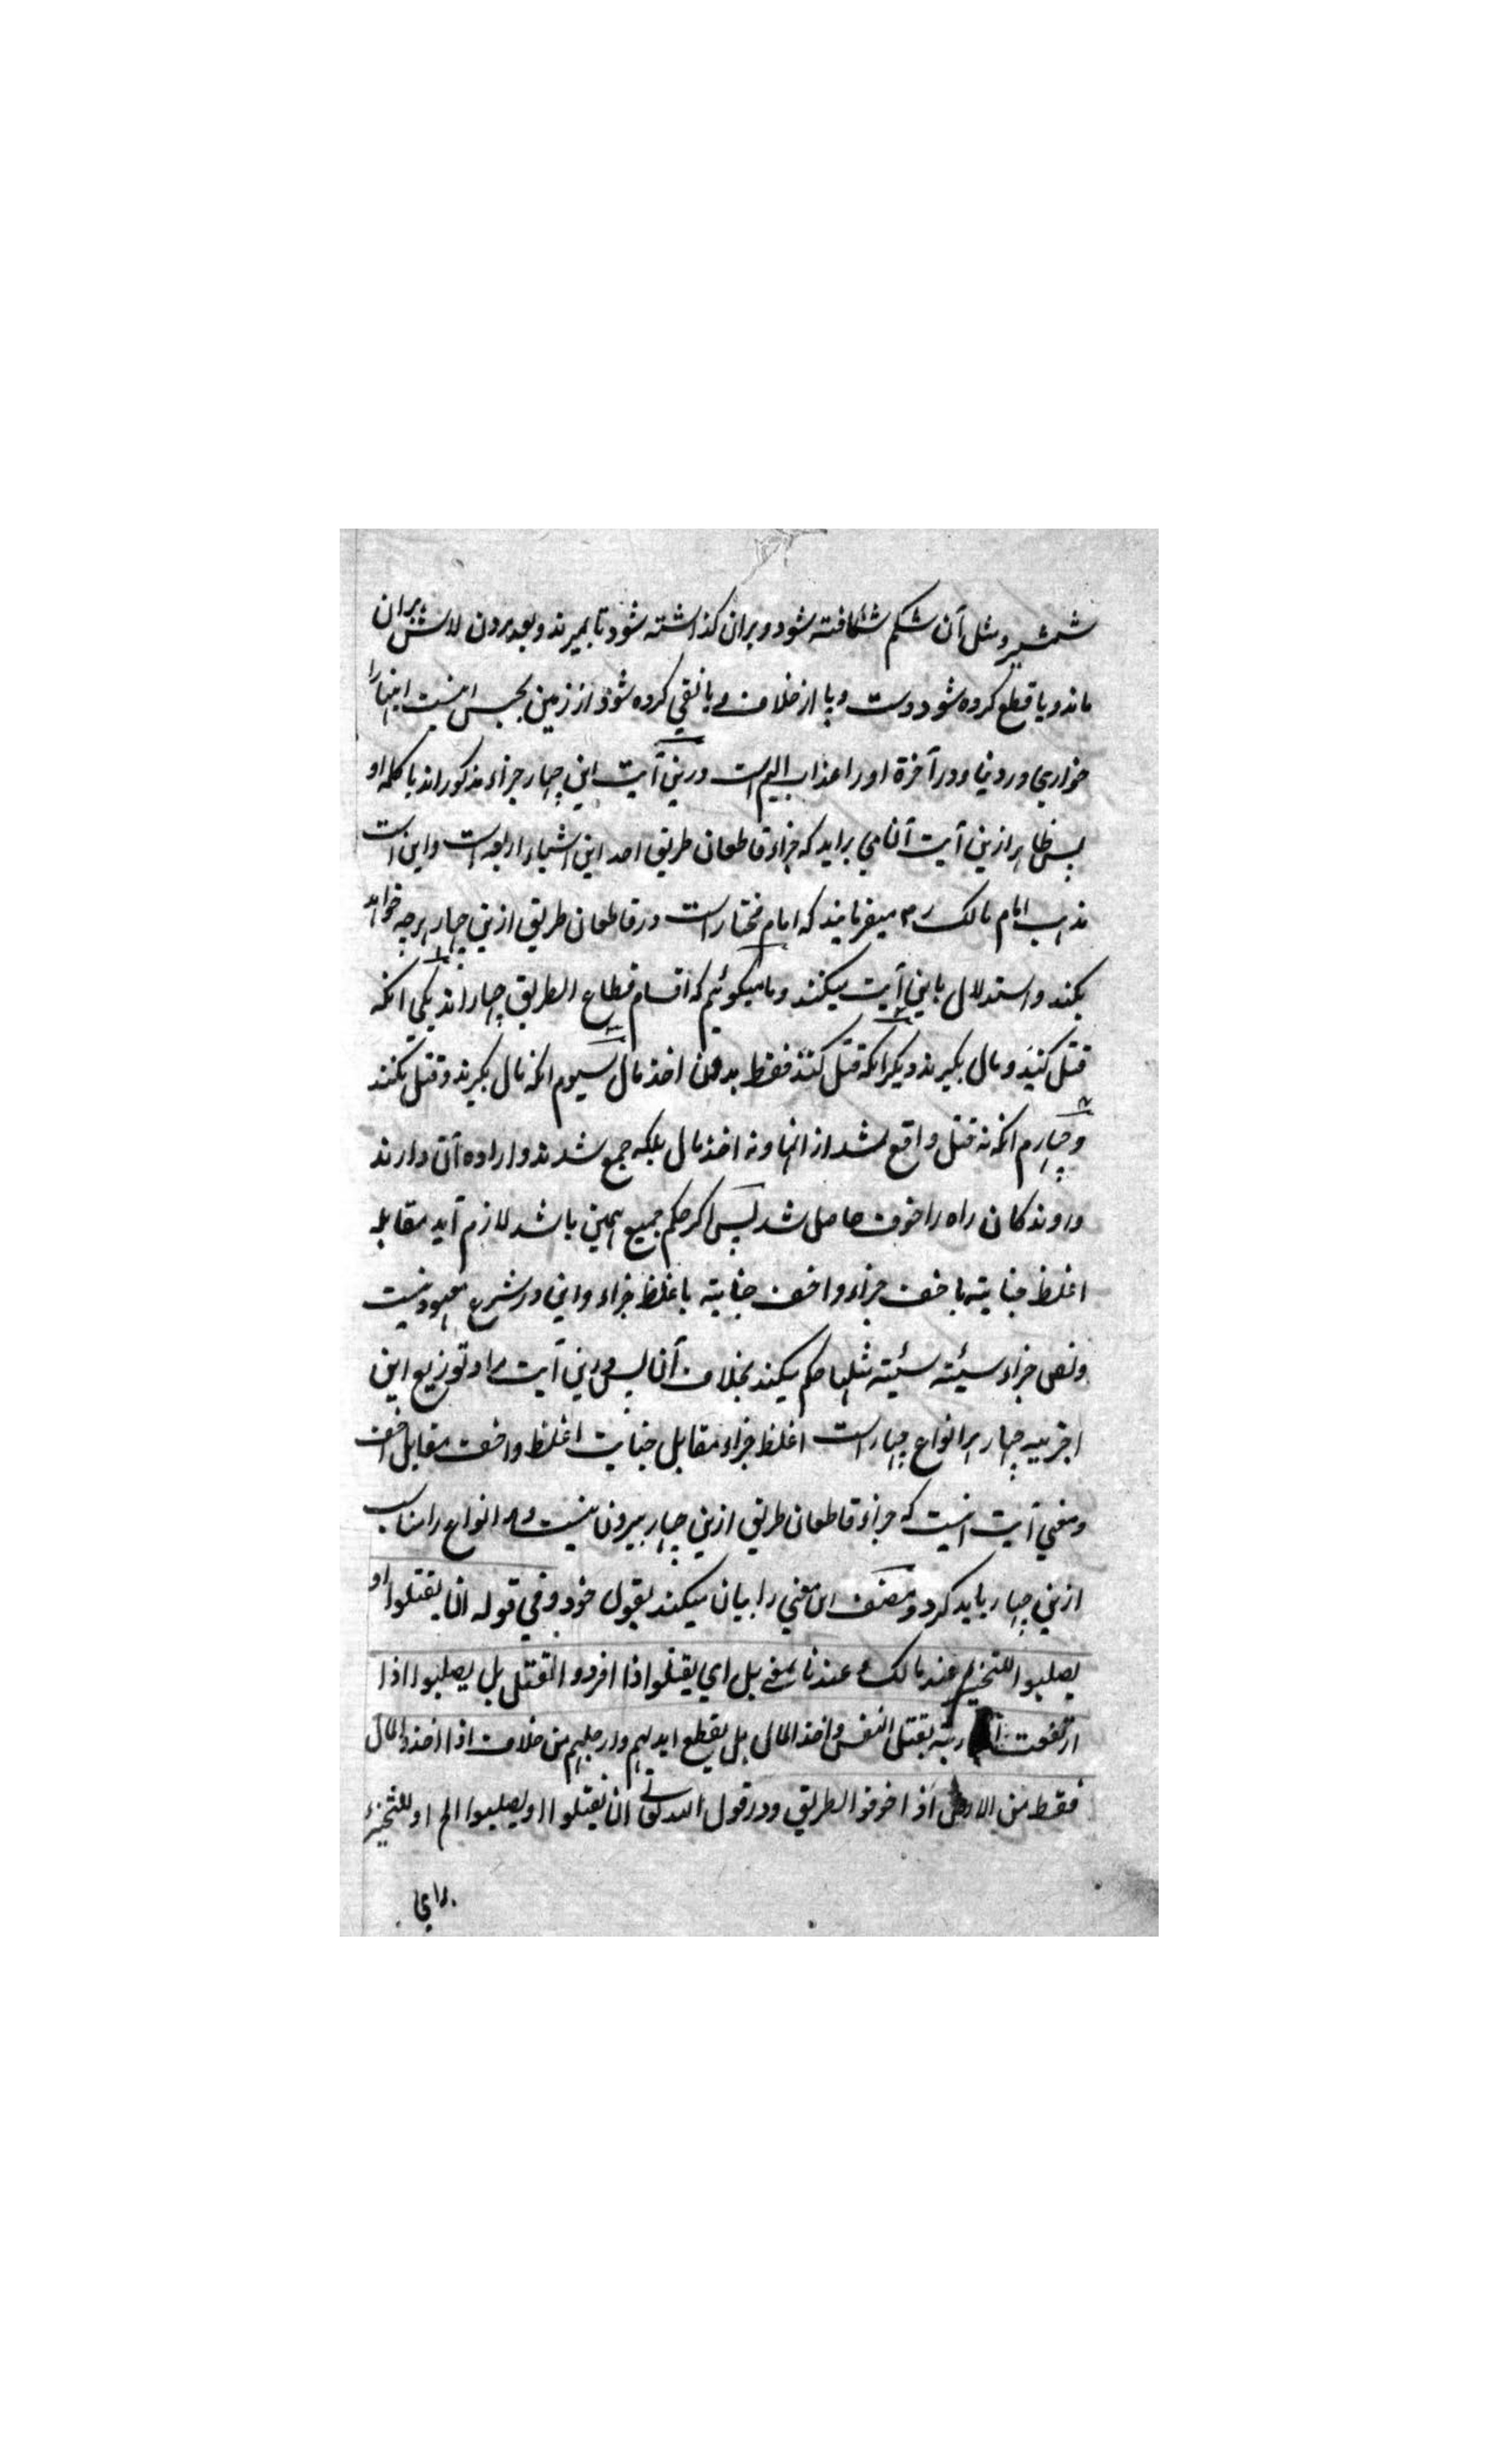 شمشیر و مثل آن شکم شکافته شود و بران کذاشته شود تا بمیرند و بعد مردن لاش بران
ماند و یا قطع کرده شود دست و پا از خلاف و یا نفي کرده شود از زمین بحبس اینست اینها را
خواري در دنیا و در آخرة او را عذاب الیم است درین آیت این چهار جزاء مذکور اند با کلمه او
پس ظاهر ازین آیت آنا مي براید که جزاء قاطعان طریق احد این اشیاء اربعه است و این است
مذهب امام مالک رح میفرمایند که امام مختار است در قاطعان طریق ازین چهار هرچه خواهد
بکند و استدلال باین آیت میکنند و ما میکوئیم که اقسام قطاع الطریق چهار اند یکي انکه
قتل کنند و مال بکیرند دیکر انکه قتل کنند فقط بدون اخذ مال سیوم انکه مال بکیرند و قتل نکنند
و چهارم انکه نه قتل واقع شد از انها و نه اخذ مال بلکه جمع شدند و اراده آن دارند
و روندکان راه را خوف حاصل شد پس اکر حکم جمیع همین باشد لازم آید مقابله
اغلظ جنایته باخف جزاء و اخف جنایته باغلظ جزاء و این در شرع معهود نیست
و نص جزاء سیئته سیئته مثلها حکم میکند بخلاف آنا پس درین آیت مراد توزیع این
اجزییه چهار بر انواع چهار است اغلظ جزاء مقابل جنایت اغلظ و اخف مقابل اخف
و معني آیت اینست که جزاء قاطعان طریق ازین چهار بیرون نیست و هر انواع را مناسب
ازین چهار باید کرد و مصنف این معني را بیان میکند بقول خود و في قوله ان یقتلوا او
یصلبوا للتخییر عند مالک و عندنا بمعنی بل اي یقتلوا اذا افردوا القتل بل یصلبوا اذا
ارتفعت المحاربته بقتل النفس و اخذ المال بل یقطع ایدیهم و ارجلهم من خلاف اذا اخذوا المال
فقط من الارض اذا خوفوا الطریق و در قول الله تعالی ان یقتلوا او یصلبوا الخ او للتخییر
راي